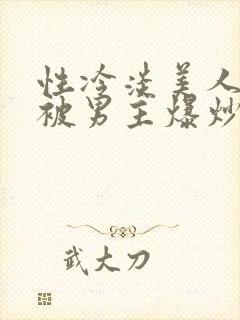 性冷淡美人
被男主爆炒
武大刀